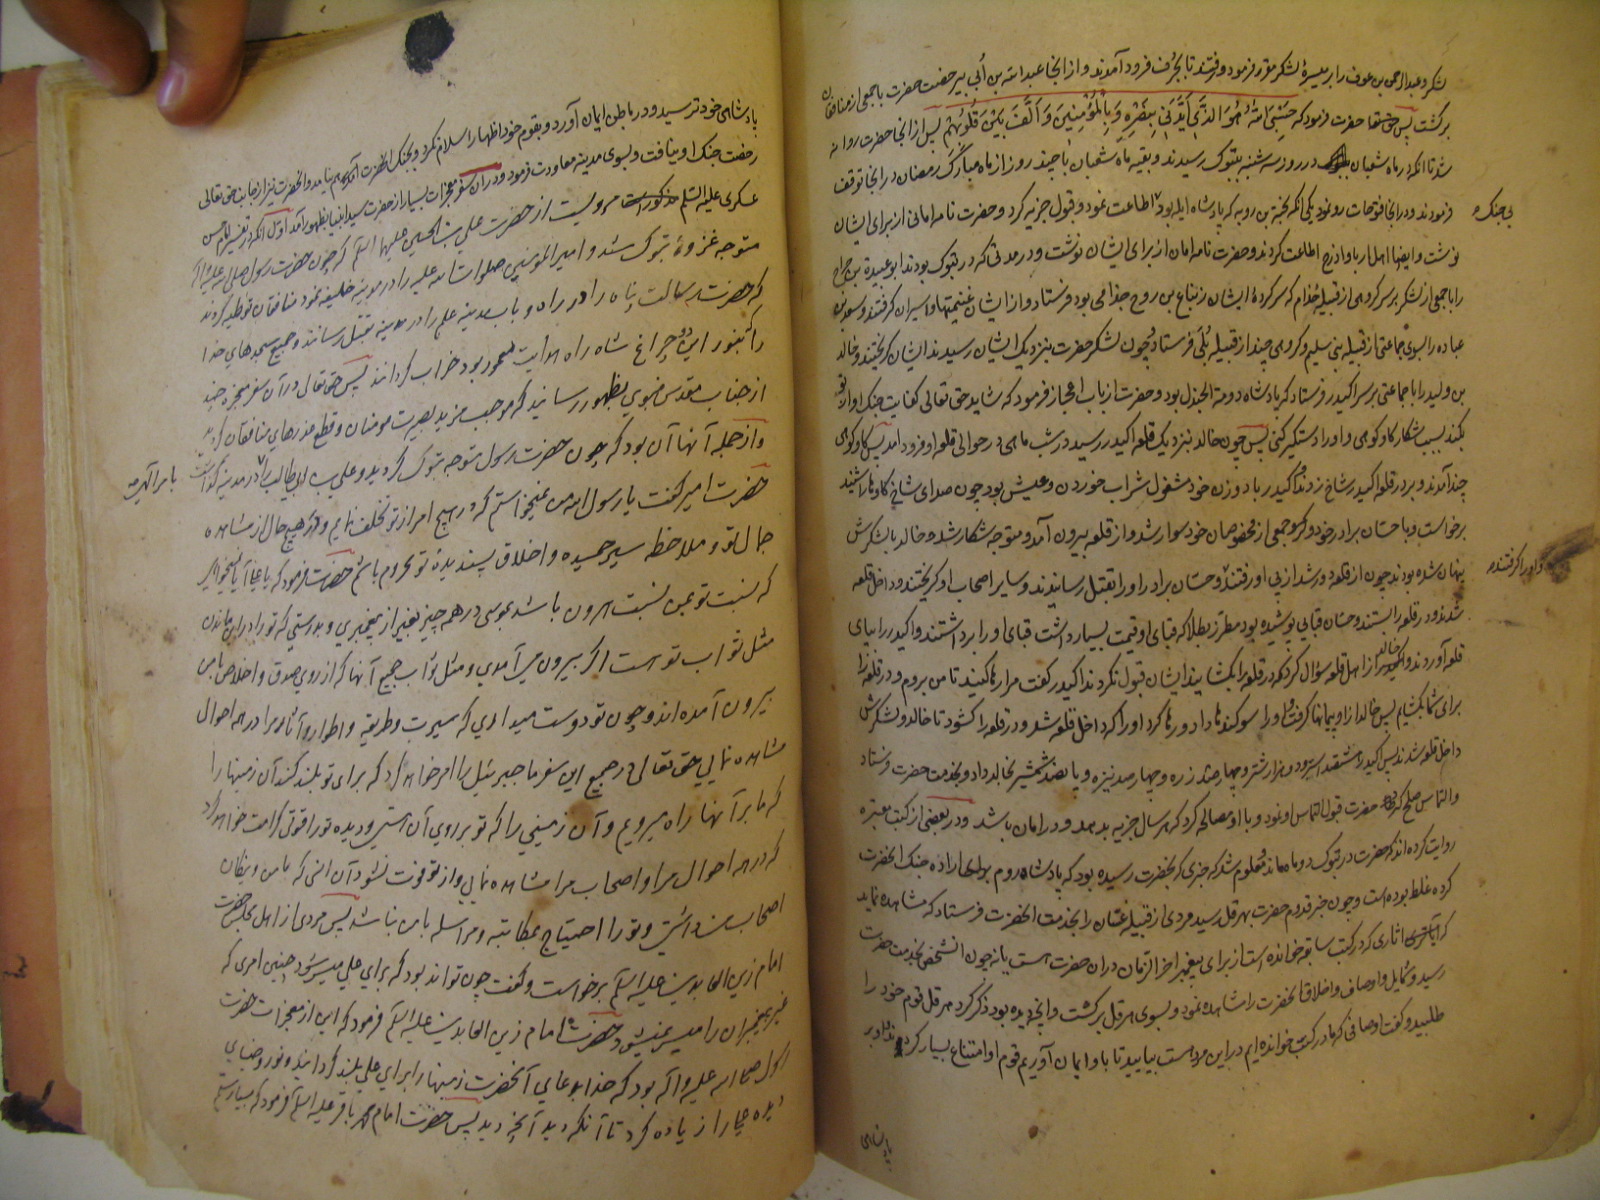 لشکر و عبدالرحمن بن عوف را بر میسرهٔ لشکر مقرر فرمود و رفتند تا بجرف فرود آمدند و از آنجا عبدالله بن أبی بی رخصت حضرت با جمعی از منافقان
برگشت پس حضرت فرمود که حَسْبِیَ اللهُ هُوَ الَّذی اَیَّدَنی بِنَصْرِهِ وَ بِالْمُؤمِنینَ وَ اَلَّفَ بَیْنَ قُلُوبِهِمْ پس از آنجا حضرت روانه
شد تا آنکه در ماه شعبان در روز سه شنبه بتبوک رسیدند و بقیه ماه شعبان با چند روز از ماه مبارک رمضان در آنجا توقف
فرمودند و در آنجا فتوحات رو نمود یکی آنکه بن روبه که پادشاه ایله بود اطاعت نمود و قبول جزیه کرد و حضرت نامه امانی از برای ایشان
بی جنک
نوشت و ایضا اهل جربا و اذرح اطاعت کردند و حضرت نامه امان از برای ایشان نوشت و در مدتی که در تبوک بودند ابو عبیدة بن جراح
را با جمعی از لشکر بر سر گروهی از قبیله جُذام که سرکردهٔ ایشان زنباع بن روح جذامی بود فرستاد و از ایشان غنیمتها و اسیران گرفتند و سعد بن
عباده را بسوی جماعتی از قبیله بنی سلیم و گروهی چند از قبیله بَلَی فرستاد و چون لشکر حضرت بنزدیک ایشان رسیدند ایشان گریختند و خالد
بن ولید را با جماعتی بر سر اکیدر فرستاد که پادشاه دومة الجندل بود و حضرت از باب اعجاز فرمود که شاید حق تعالی کفایت جنک او از تو
بکند بسبب شکار گاو کوهی و او را دستگیر کنی پس چون خالد بنزدیک قلعه اکیدر رسید در شب ماهی در حوالی قلعه او فرود آمد پس گاو کوهی
چند آمدند و بر در قلعه اکیدر شاخ زدند و اکیدر با دو زن خود مشغول شراب خوردن و عیش بود چون صدای شاخ گاوها را شنید
برخواست و با حسان برادر خود و جمعی از مخصوصان خود سوار شد و از قلعه بیرون آمد و متوجه شکار شد و خالد با لشکرش
پنهان شده بودند چون از قلعه دور شد از پی او رفتند و حسان برادر او را بقتل رسانیدند و سایر اصحاب او گریختند و داخل قلعه
و او را گرفتند
شدند و در قلعه را بستند و حسان قبایی پوشیده بود مطرز بطلا که قبای او قیمت بسیار داشت قبای او را برداشتند و اکیدر را بپای
قلعه آوردند و خالد از اهل قلعه سؤال کرد که در قلعه را بگشایند ایشان قبول نکردند اکیدر گفت مرا رها کنید تا من بروم و در قلعه را
برای شما بگشایم پس خالد از او پیمانها گرفت و او را سوگندها داد و رها کرد او را که داخل قلعه شد و در قلعه را گشود تا خالد و لشکرش
داخل قلعه شدند پس اکیدر هشتصد اسیر و دو هزار شتر و چهار صد زره و چهار صد نیزه و پانصد شمشیر بخالد داد و بخدمت حضرت فرستاد
و التماس صلح کرد حضرت قبول التماس او نمود و با او مصالحه کرد که هر سال جزیه بدهد و در امان باشد و در بعضی از کتب معتبره
روایت کرده اند که حضرت در تبوک دو ماه ماند و معلوم شد که خبری که بحضرت رسیده بود که پادشاه روم اراده جنک آنحضرت
کرده غلط بوده است و چون خبر قدوم حضرت بهرقل رسید مردی از قبیله غسّان را بخدمت آنحضرت فرستاد که مشاهده نماید
که آثاری که در کتب سابقه خوانده است از برای پیغمبر آخر الزمان در آن حضرت هست یا نه چون آنشخص بخدمت حضرت
رسید و شمایل و اوصاف و اخلاق آنحضرت را مشاهده نمود و بسوی هرقل برگشت و آنچه دیده بود ذکر کرد هرقل قوم خود را
طلبید و گفت اوصافی که ما در کتب خوانده ایم در این مرد هست بیایید تا باو ایمان آوریم قوم او امتناع بسیار کردند و او بر
پادشاهی
پادشاهی خود ترسید و در باطن ایمان آورد و بقوم خود اظهار اسلام نکرد و بجنک آنحضرت هم نیامد و آنحضرت نیز از جانب حق تعالی
رخصت جنک او نیافت و بسوی مدینه معاودت فرمود و در آن سفر معجزات بسیار از حضرت سید انبیا بظهور آمد اول آنکه در تفسیر امام حسن
عسکری علیه السلم مذکور است مرویست از حضرت علی بن الحسین علیهما السلم که چون حضرت رسول صلی الله علیه و آله
متوجه غزوهٔ تبوک شد و امیر المؤمنین صلوات الله علیه را در مدینه خلیفه نمود منافقان توطیه کردند
که حضرت رسالت پناه را در راه و باب مدینه علم را در مدینه بقتل رسانند و جمیع مسجدهای خدا
را که بنور این دو چراغ شاه راه هدایت معمور بود خراب گردانند پس حق تعالی در آن سفر معجزه چند
از جناب مقدس نبوی بظهور رسانید که موجب مزید بصیرت مومنان و قطع عذرهای منافقان گردید
و از جمله آنها آن بود که چون حضرت رسول متوجه تبوک گردید و علی بن ابی طالب را در مدینه گذاشت
بامر الهی
حضرت امیر گفت یا رسول الله من نمیخواستم که در هیچ امر از تو تخلف نمایم و در هیچ حال از مشاهده
جمال تو و ملاحظه سیر حمیده و اخلاق پسندیده تو محروم باشم حضرت فرمود که یا علی آیا نمیخواهی
که نسبت تو بمن نسبت هرون باشد بموسی در همه چیز بغیر از پیغمبری و بدرستی که تو را در این ماندن
مثل ثواب تو هست اگر بیرون می آمدی و مثل ثواب جمیع آنها که از روی صدق و اخلاص با من
بیرون آمده اند و چون تو دوست میداری که سیرت و طریقه و اطوار و آثار مرا در همه احوال
مشاهده نمایی حق تعالی در جمیع این سفر ما جبرئیل را امر خواهد کرد که برای تو بلند کند آن زمینها را
که ما بر آنها راه میرویم و آن زمینی را که تو بر روی آن هستی و دیده تو را قوتی کرامت خواهد کرد
که در همه احوال مرا و اصحاب مرا مشاهده نمایی و از تو فوت نشود آن انسی که با من و نیکان
اصحاب من داشتی و تو را احتیاج بمکاتبه و مراسله با من نباشد پس مردی از اهل مجلس حضرت
امام زین العابدین علیه السلم برخواست و گفت چون تواند بود که برای علی میسر شود چنین امری که
غیر پیغمبران را میسر نمیشود حضرت امام زین العابدین علیه السلم فرمود که این از معجزات حضرت
رسول صلی الله علیه و آله بود که خدا بدعای آنحضرت زمینها را برای علی بلند گردانید و نور و ضیای
دیده علی را زیاده کرد تا آنکه دید آنچه دید پس حضرت امام محمد باقر علیه السلم فرمود که بسیار ستم